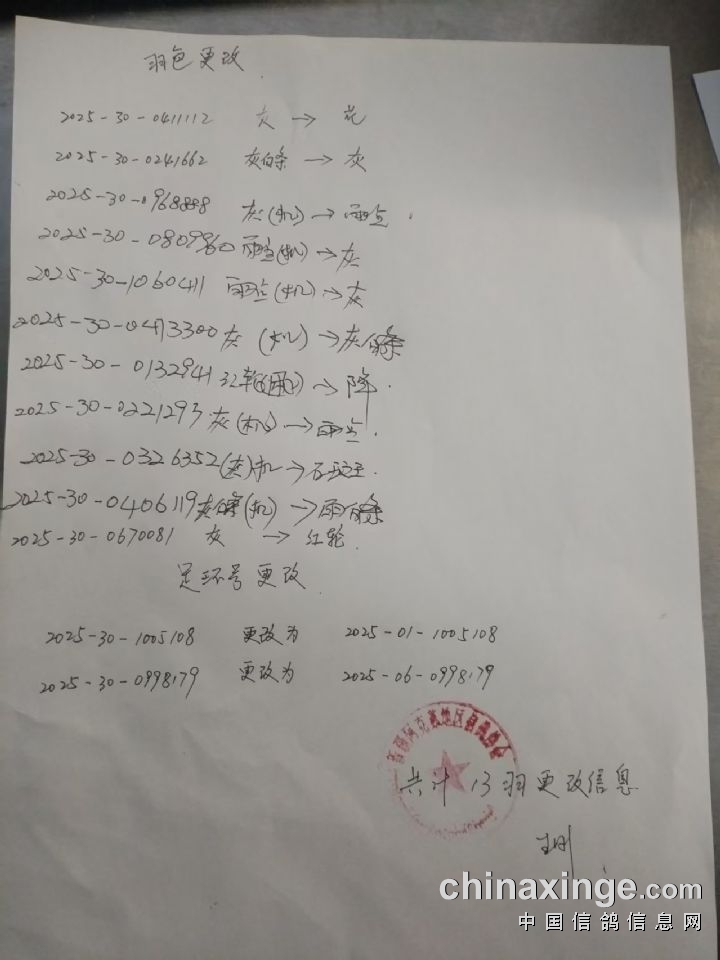 羽色更改
2025-30-0411112 灰 → 花
2025-30-0241662 灰白条 → 灰
2025-30-0968888 灰(机) → 雨点.
2025-30-0809960 雨点(机) → 灰
2025-30-1060411 雨点(机) → 灰
2025-30-0413300 灰 (机) → 灰白条
2025-30-0132941 红轮(机) → 降.
2025-30-0221293 灰(机) → 雨点.
2025-30-0326352 (灰)机 → 石板.
2025-30-0406119 灰白条(机) → 雨白条
2025-30-0670081 灰 → 红轮
足环号更改
2025-30-1005108 更改为 2025-01-1005108
2025-30-0998179 更改为 2025-06-0998179
共计 13羽更改信息
chinaxinge.com
中国信鸽信息网